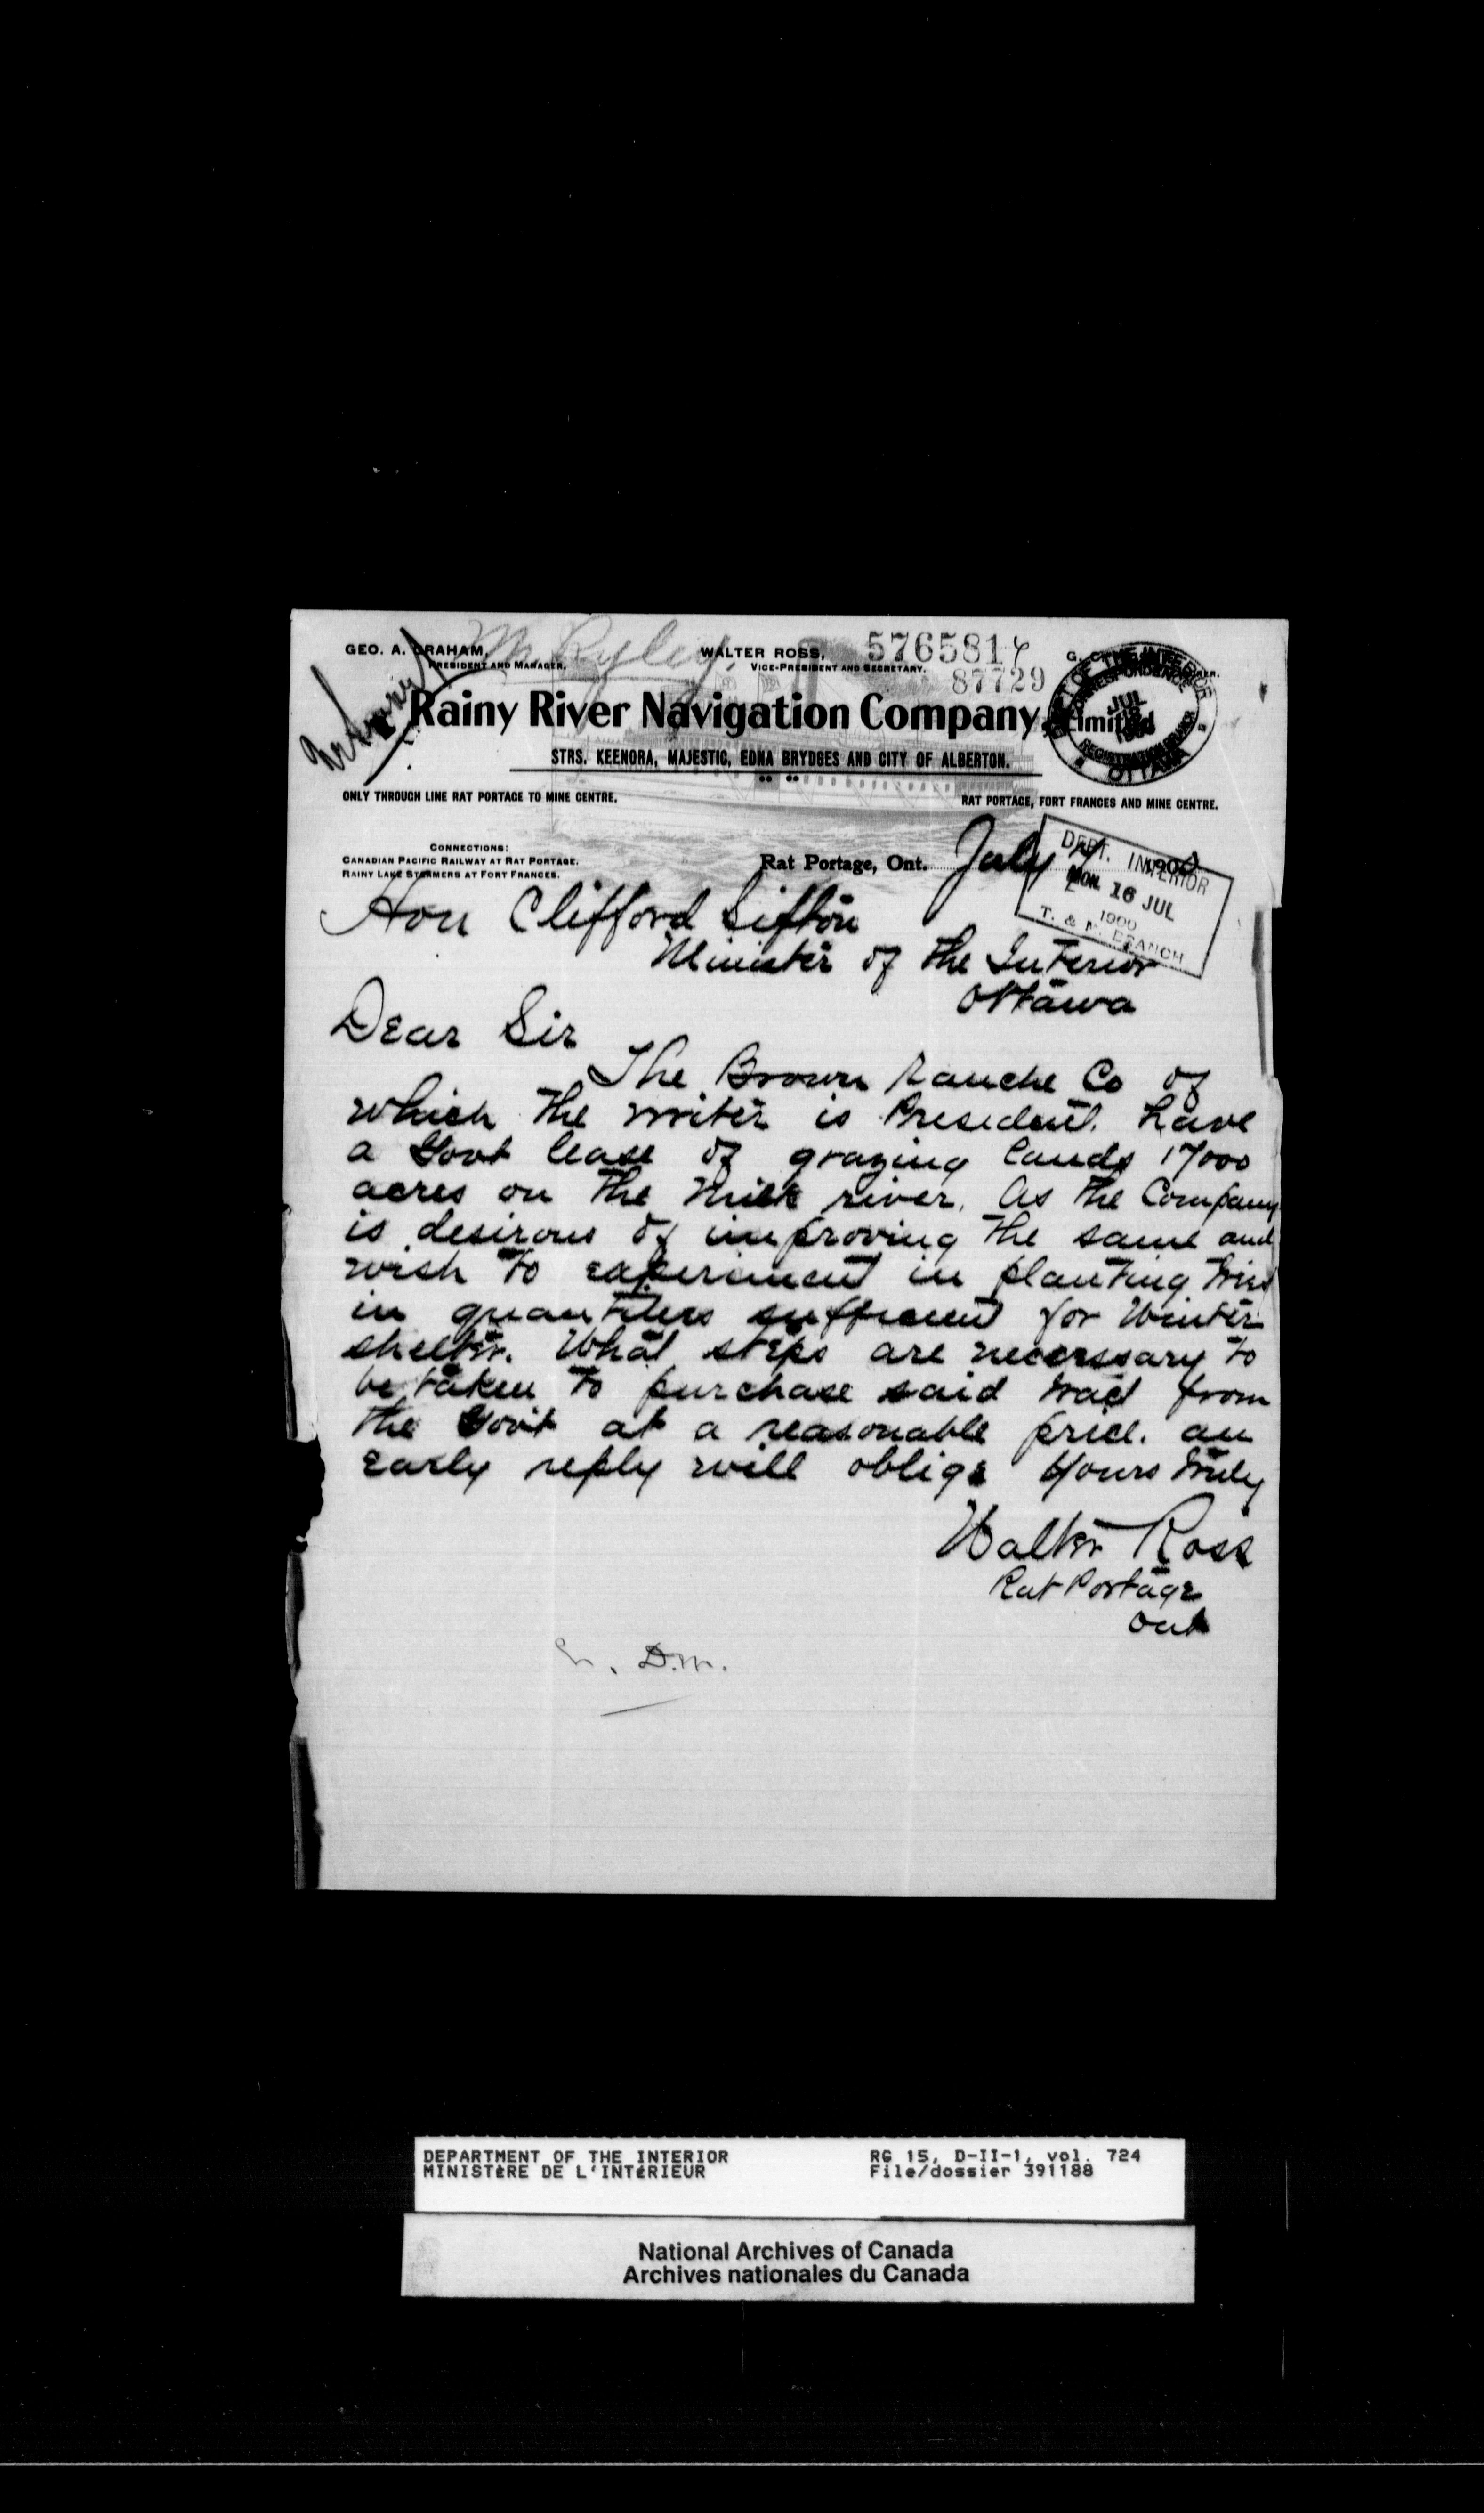 Mr Ryley,
GEO. A. GRAHAM,
PRESIDENT AND MANAGER.
WALTER ROSS,
VICE-PRESIDENT AND SECRETARY.
576581
87729
Rainy River Navigation Company, Limited
STRS. KEENORA, MAJESTIC, EDNA BRYDGES AND CITY OF ALBERTON.
ONLY THROUGH LINE RAT PORTAGE TO MINE CENTRE.
RAT PORTAGE, FORT FRANCES AND MINE CENTRE.
DEPT OF THE INTERIOR
CORRESPONDENCE
JUL
1900
REGISTRATION BRANCH
OTTAWA
CONNECTIONS:
CANADIAN PACIFIC RAILWAY AT RAT PORTAGE.
RAINY LAKE STEAMERS AT FORT FRANCES.
Rat Portage, Ont. July 1900
DEPT. INTERIOR
MON. 16 JUL
1900
T. & M. BRANCH
Hon Clifford Sifton
Minister of the Interior
Ottawa
Dear Sir
The Brown Ranche Co of
which the writer is President. have
a Govt lease of grazing lands 17000
acres on the Milk river. As the Company
is desirous of improving the same and
wish to experiment in planting trees
in quantities sufficient for Winter
shelter. What steps are necessary to
be taken to purchase said tract from
the Govt at a reasonable price. an
early reply will oblige Yours truly
Walter Ross
Rat Portage
Ont
D.M.
DEPARTMENT OF THE INTERIOR
MINISTÈRE DE L'INTÉRIEUR
RG 15, D-II-1, vol. 724
File/dossier 391188
National Archives of Canada
Archives nationales du Canada